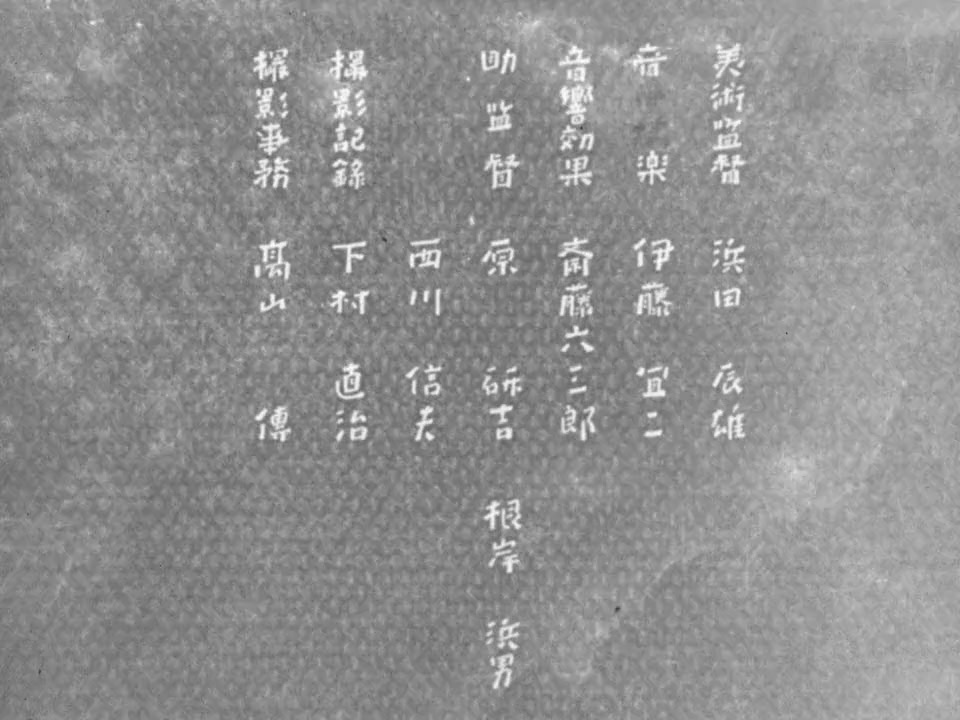 美術監督 浜田 辰雄
音楽 伊藤 宜二
音響効果 斎藤六三郎
助監督 原 研吉 根岸 浜男
西川 信夫
撮影記録 下村 直治
撮影事務 高山 傳